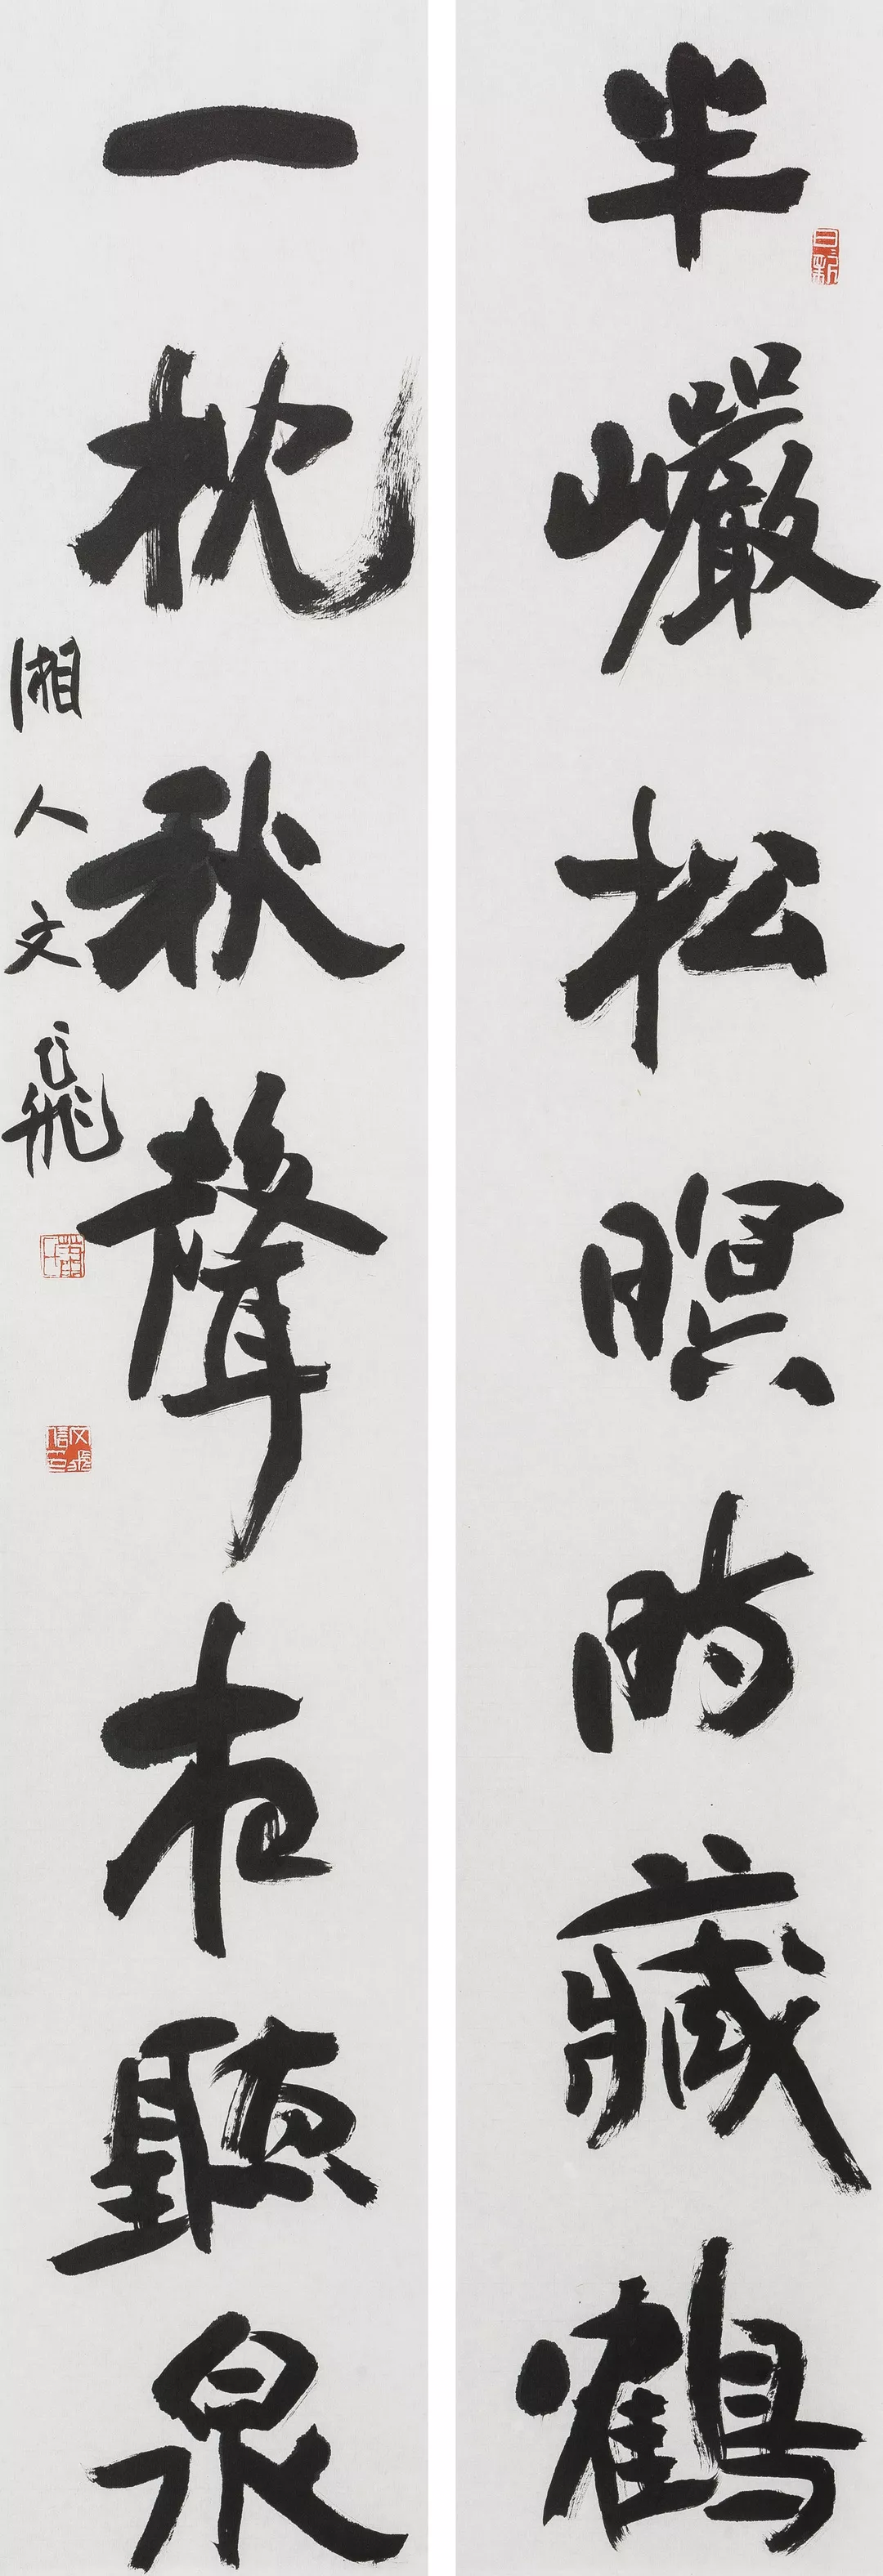 半巖松暝時藏鶴
一枕秋聲夜聽泉
湘人文飛
文飛信印